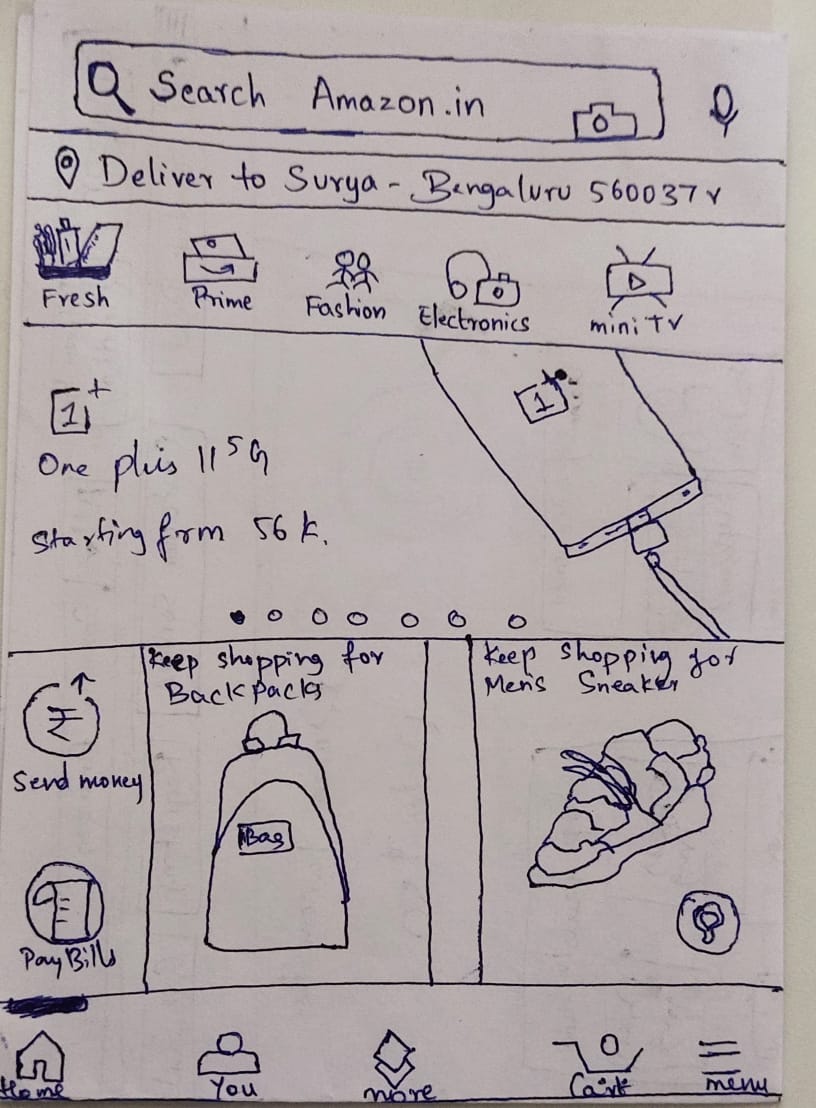 Search Amazon.in
Deliver to Surya - Bengaluru 560037
Fresh Prime Fashion Electronics mini TV
1+
1+
One plus 11 5G
Starting frm 56 k.
Keep shopping for
Back packs
Keep shopping for
Men's Sneaker
₹
Send money
Bag
Pay Bills
Home You more Cart menu